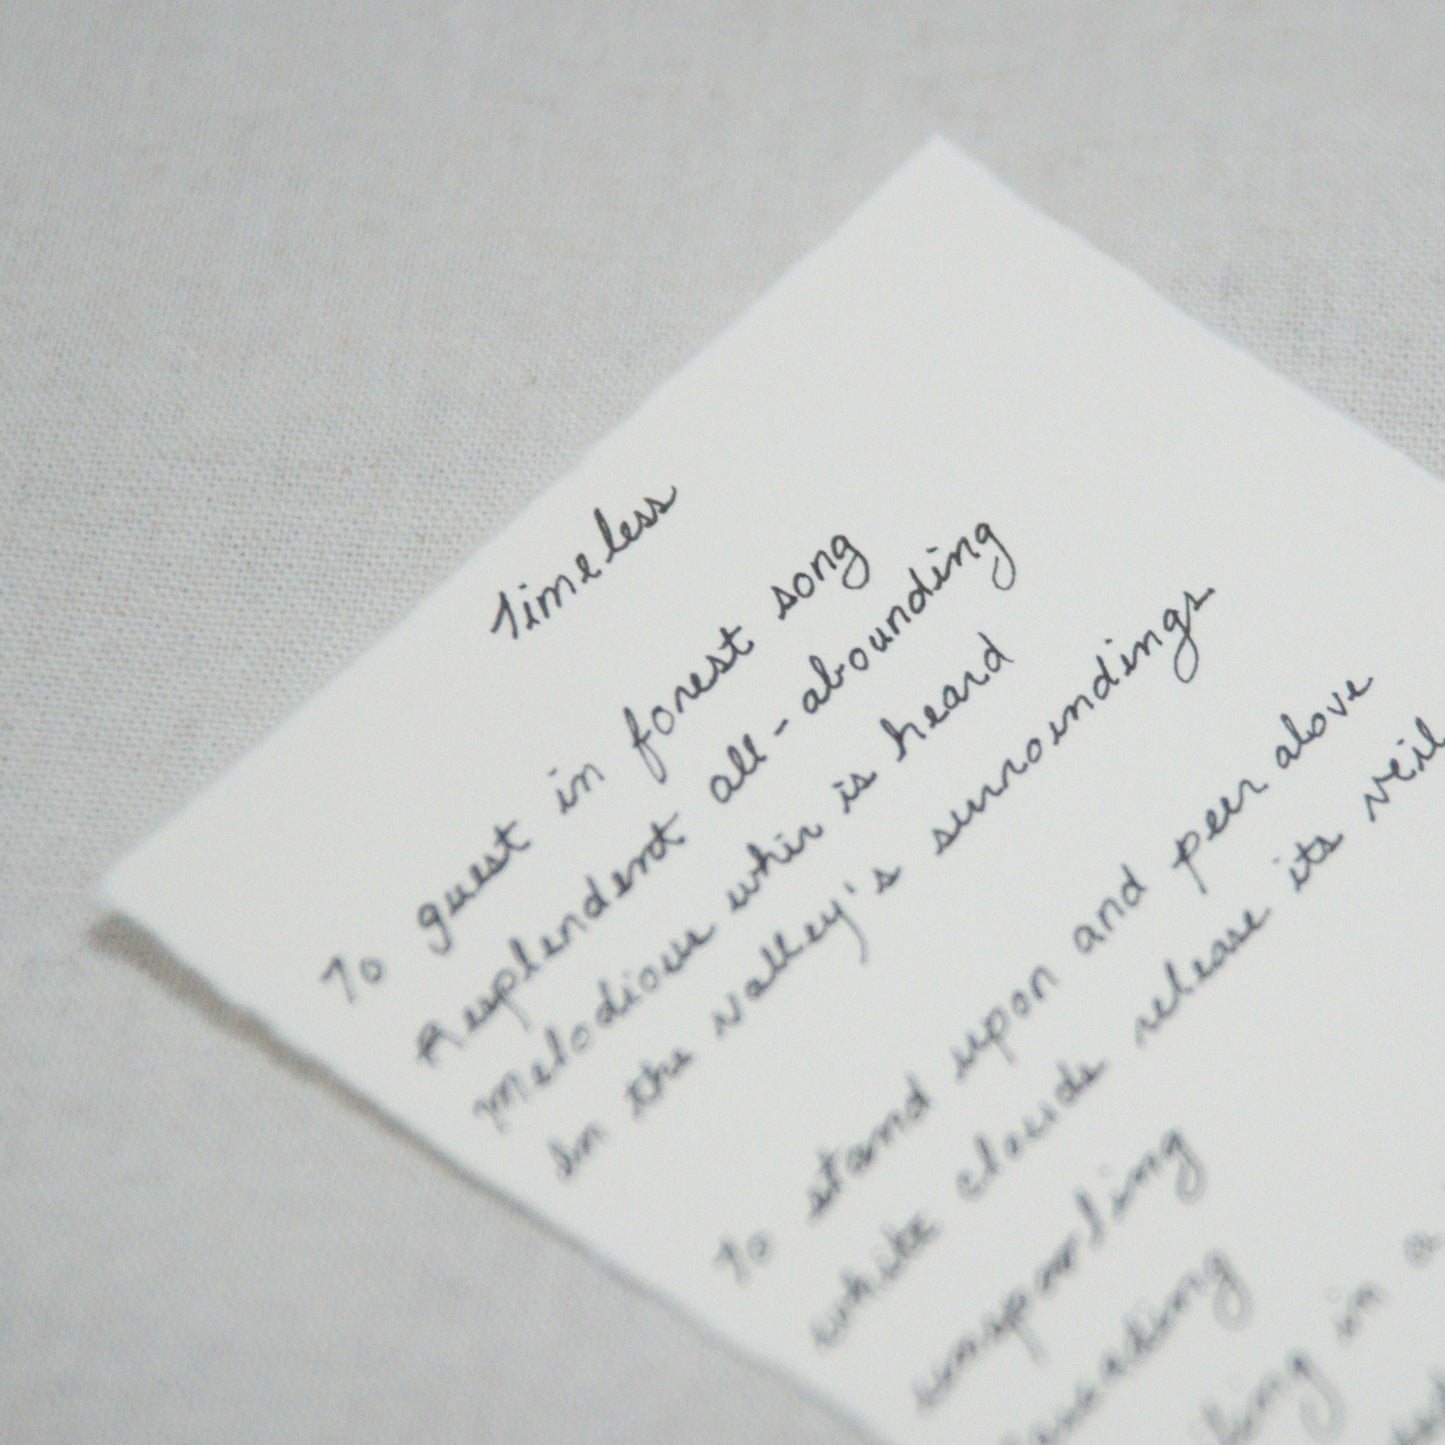 Timeless
To guest in forest song
Resplendent all-abounding
Melodious whir is heard
In the valley's surroundings.
To stand upon and peer above
White clouds release its veil
unspooling
in a